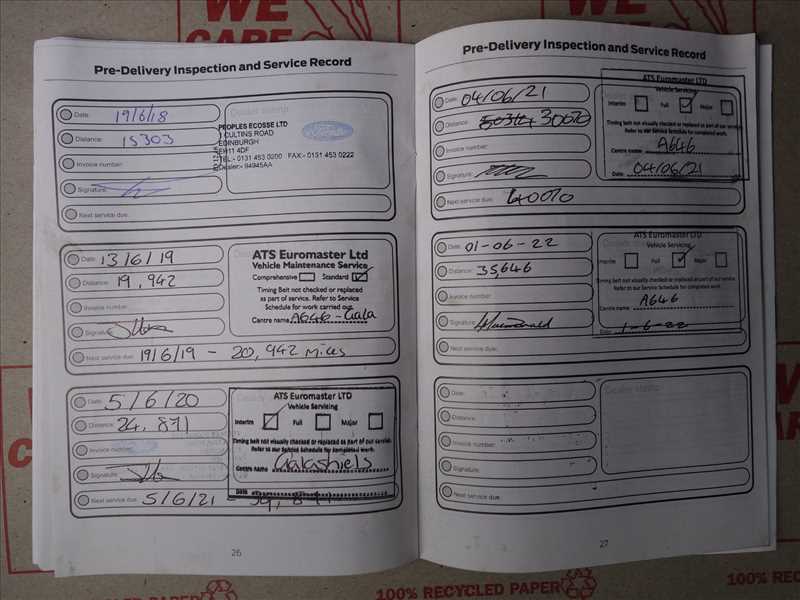 WE
CARE
WE
Pre-Delivery Inspection and Service Record
Date: 19/6/18
Distance: 15303
Invoice number:
Signature:
Next service due:
PEOPLES ECOSSE LTD
CULTINS ROAD
EDINBURGH
EH11 4DF
TEL:- 0131 453 0200 FAX:- 0131 453 0222
Dealer:- 94945AA
Ford
Date: 13/6/19
Distance: 19,942
Invoice number:
Signature:
Next service due: 19/6/19 - 20,942 Miles
ATS Euromaster Ltd
Vehicle Maintenance Service
Comprehensive Standard
Timing Belt not checked or replaced
as part of service. Refer to Service
Schedule for work carried out.
Centre name A646-Gala
Date: 5/6/20
Distance: 24,871
Invoice number:
Signature:
Next service due: 5/6/21 -
ATS Euromaster LTD
Vehicle Servicing
Interim Full Major
Timing belt not visually checked or replaced as part of our service.
Refer to our Service Schedule for completed work.
Centre Name Galashiels
Date
26
Pre-Delivery Inspection and Service Record
Date: 04/06/21
Distance: 30070
Invoice number:
Signature:
Next service due: 40070
ATS Euromaster LTD
Vehicle Servicing
Interim Full Major
Timing belt not visually checked or replaced as part of our service.
Refer to our Service Schedule for completed work.
Centre name A646
Date 04/06/21
Date: 01-06-22
Distance: 35,646
Invoice number:
Signature:
Next service due:
ATS Euromaster LTD
Vehicle Servicing
Interim Full Major
Timing belt not visually checked or replaced as part of our service.
Refer to our Service Schedule for completed work.
Centre name A646
Date 1-6-22
Date:
Distance:
Invoice number:
Signature:
Next service due:
Dealer stamp:
27
100% RECYCLED PAPER
100% RECYCLED PAPER